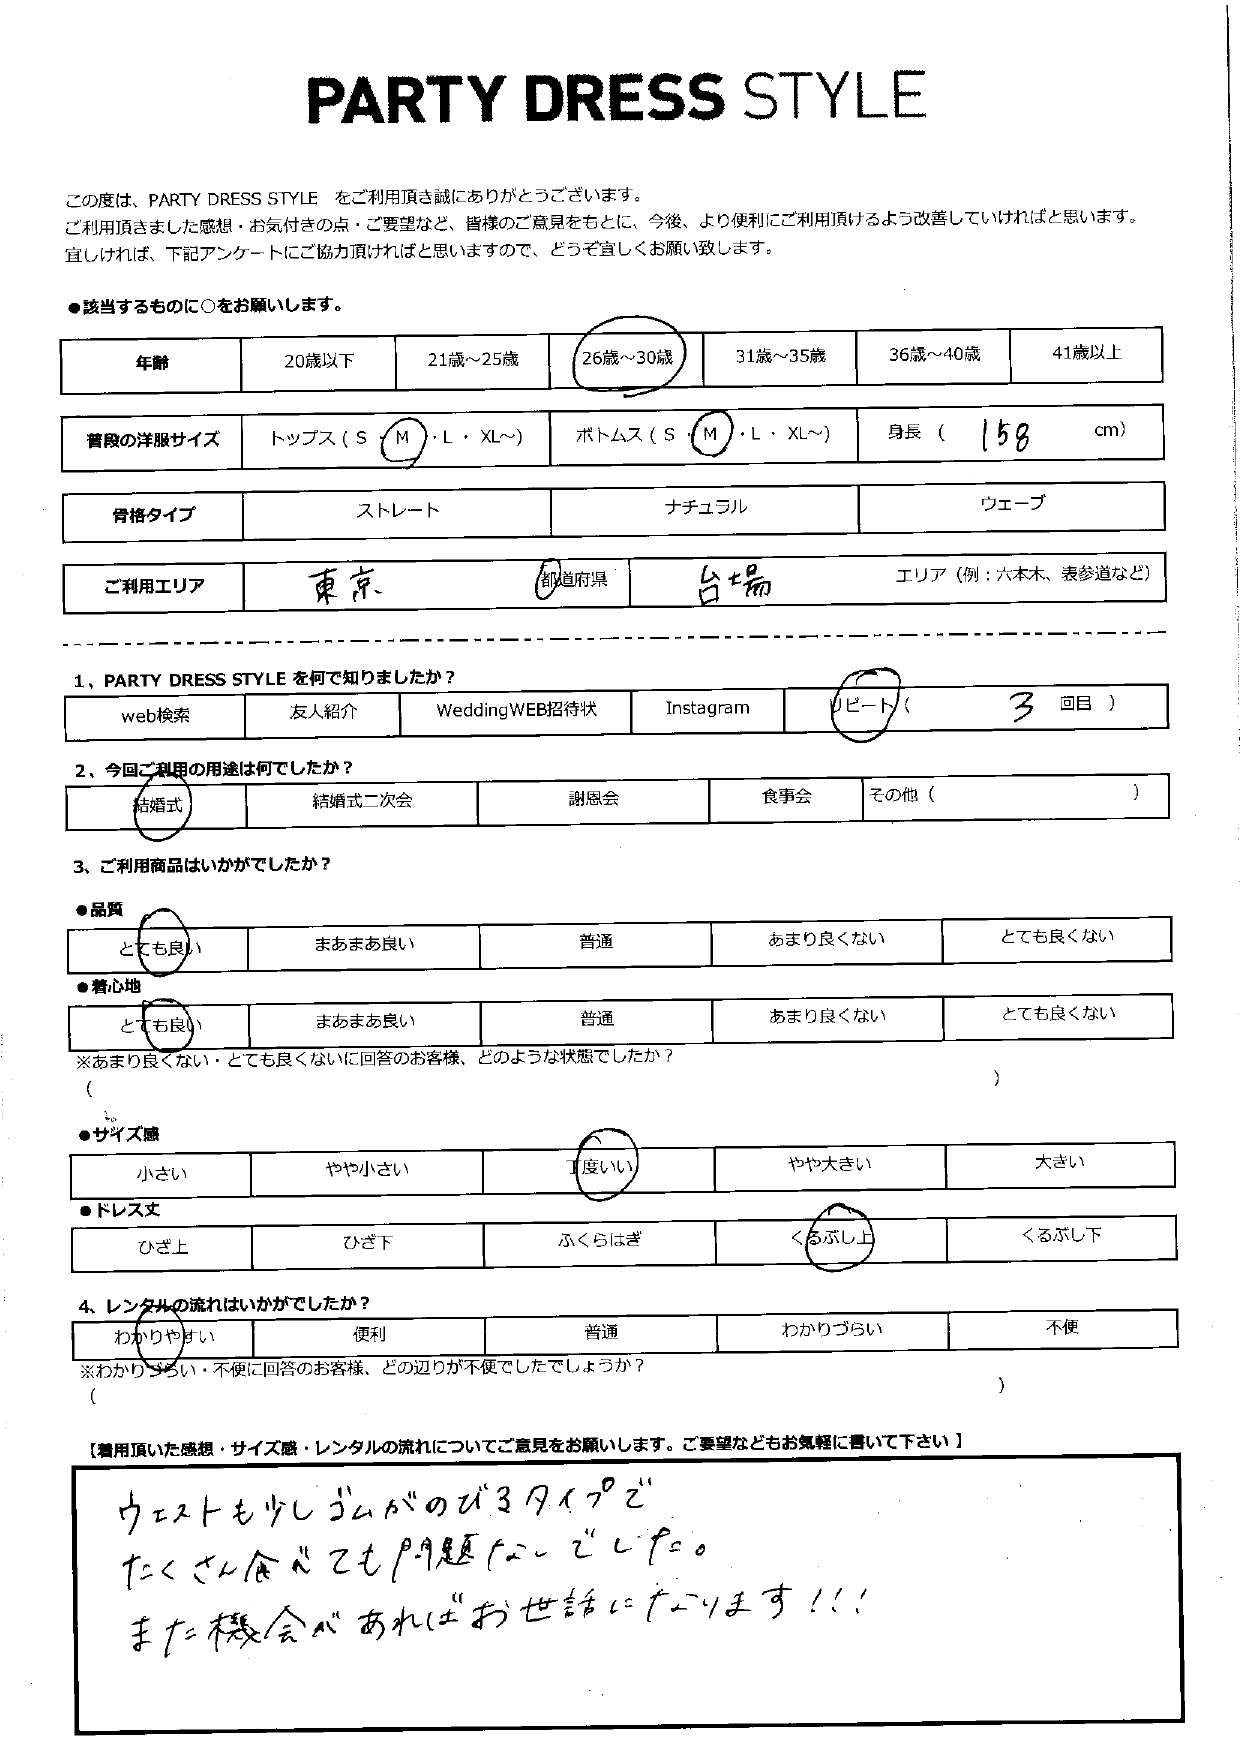 PARTY DRESS STYLE
この度は、PARTY DRESS STYLE をご利用頂き誠にありがとうございます。
ご利用頂きました感想・お気付きの点・ご要望など、皆様のご意見をもとに、今後、より便利にご利用頂けるよう改善していければと思います。
宜しければ、下記アンケートにご協力頂ければと思いますので、どうぞ宜しくお願い致します。
●該当するものに○をお願いします。
年齢 20歳以下 21歳～25歳 26歳～30歳 31歳～35歳 36歳～40歳 41歳以上
普段の洋服サイズ トップス ( S ・ M ・ L ・ XL～) ボトムス ( S ・ M ・ L ・ XL～) 身長 ( 158 cm)
骨格タイプ ストレート ナチュラル ウェーブ
ご利用エリア 東京 都道府県 台場 エリア (例：六本木、表参道など)
1、PARTY DRESS STYLE を何で知りましたか？
web検索 友人紹介 WeddingWEB招待状 Instagram リピート ( 3 回目 )
2、今回ご利用の用途は何でしたか？
結婚式 結婚式二次会 謝恩会 食事会 その他 ( )
3、ご利用商品はいかがでしたか？
●品質
とても良い まあまあ良い 普通 あまり良くない とても良くない
●着心地
とても良い まあまあ良い 普通 あまり良くない とても良くない
※あまり良くない・とても良くないに回答のお客様、どのような状態でしたか？
( )
●サイズ感
小さい やや小さい 丁度いい やや大きい 大きい
●ドレス丈
ひざ上 ひざ下 ふくらはぎ くるぶし上 くるぶし下
4、レンタルの流れはいかがでしたか？
わかりやすい 便利 普通 わかりづらい 不便
※わかりづらい・不便に回答のお客様、どの辺りが不便でしたでしょうか？
( )
【着用頂いた感想・サイズ感・レンタルの流れについてご意見をお願いします。ご要望などもお気軽に書いて下さい 】
ウエストも少しゴムがのびるタイプで
たくさん食べても問題ないでした。
また機会があればお世話になります!!!